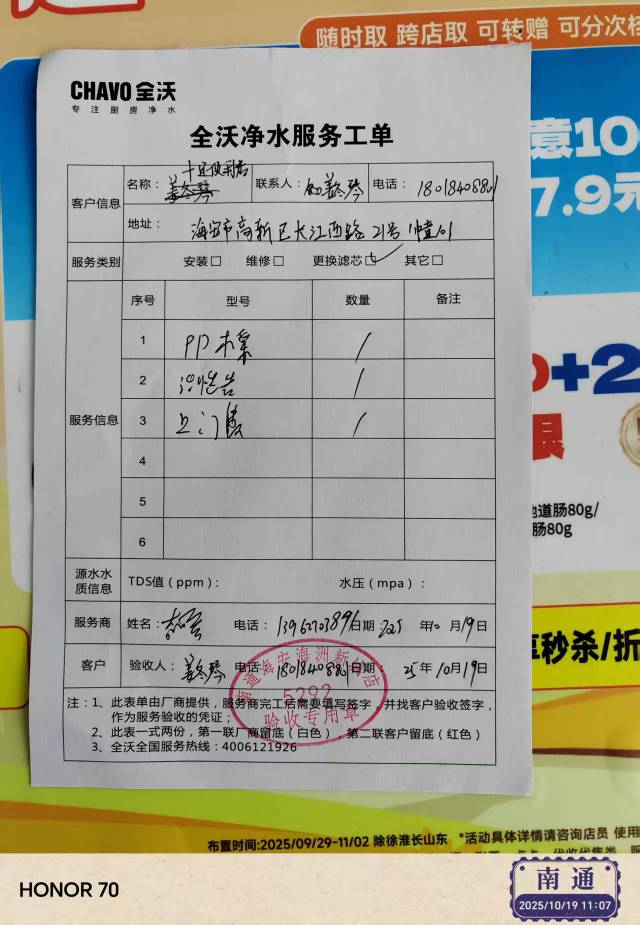 随时取 跨店取 可转赠 可分次
CHAVO 全沃
专注厨房净水
意10
7.9元
全沃净水服务工单
客户信息 名称： 联系人： 姜冬琴 电话： 18018408801
地址： 海安市高新区长江西路21号1幢101
服务类别 安装□ 维修□ 更换滤芯□✓ 其它□
服务信息 序号 型号 数量 备注
1 PP棉 1
2 1
3 上门费 1
4
5
6
+2
限
道肠80g/
肠80g
源水水质信息 TDS值（ppm）： 水压（mpa）：
服务商 姓名： 电话： 日期： 2025年10月19日
客户 验收人： 姜冬琴 电话： 18018408801 日期： 25年10月19日
南通海安海洲新村店
5292
验收专用章
注：1、此表单由厂商提供，服务商完工后需要填写签字，并找客户验收签字，
作为服务验收的凭证；
2、此表一式两份，第一联厂商留底（白色），第二联客户留底（红色）
3、全沃全国服务热线：4006121926
秒杀/折
布置时间:2025/09/29-11/02 除徐淮长山东 *活动具体详情请咨询店员 使用
HONOR 70
南通
2025/10/19 11:07